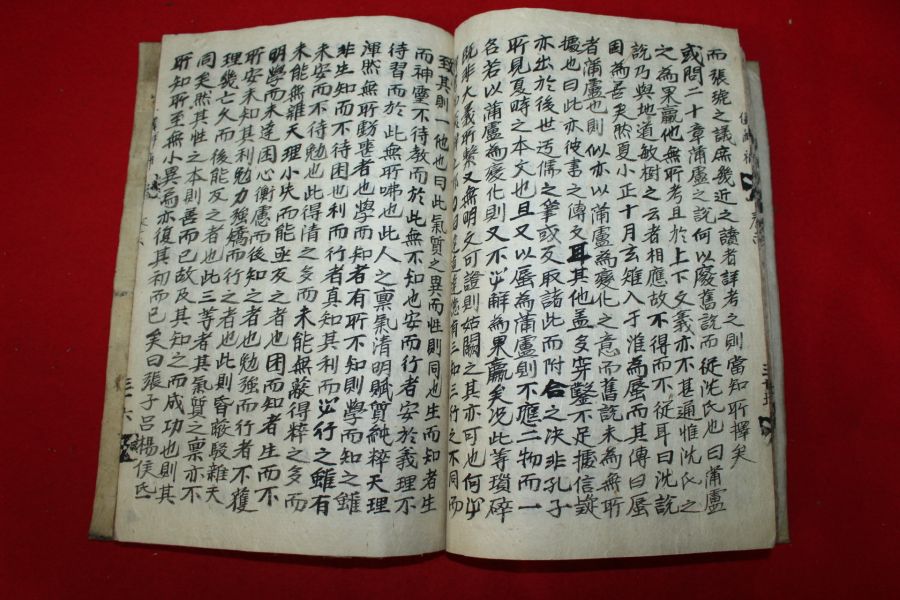 而張號之議庶幾近之讀者詳考之則當知所擇矣
或問二十章蒲盧之說何以廢舊說而從沈氏也曰蒲盧
之為果蠃他無所考且於上下文義亦不甚通惟沈氏之
說乃與地道敏樹之云者相應故不得而不從耳曰沈說
固為善矣然夏小正十月玄雉入于淮為蜃而其傳曰蜃
者蒲盧也則似亦以蒲盧為變化之意而舊說未為無所
據也曰此亦彼書之傳文耳其他盖多穿鑿不足據信疑
亦出於後世迂儒之筆或反取諸此而附合之決非孔子
所見夏時之本文也且又以蜃為蒲盧則不應二物而一
名若以蒲盧為變化則又不必解為果蠃矣况此等瑣碎
既非大義所繫又無明文可證則姑闕之其亦可也何必
三知三行之不同而
致其則一他也曰此氣質之異而性則同也生而知者生
而神靈不待教而於此無不知也安而行者安於義理不
待習而於此無所咈也此人之禀氣清明賦質純粹天理
渾然無所虧喪者也學而知者有所不知則學而知之雖
非生知而不待困也利而行者真知其利而必行之雖有
未安而不待勉也此得清之多而未能無蔽得粹之多而
未能無雜天理小失而能亟反之者也困而知者生而不
明學而未達困心衡慮而後知之者也勉强而行者不獲
所安未知其利勉力强矯而行之者也此則昏蔽駁雜天
理幾亡久而後能反之者也此三等者其氣質之禀亦不
同矣然其性之本則善而已故及其知之而成功也則其
所知所至無小異焉亦復其初而已矣曰張子呂楊侯氏
三十六